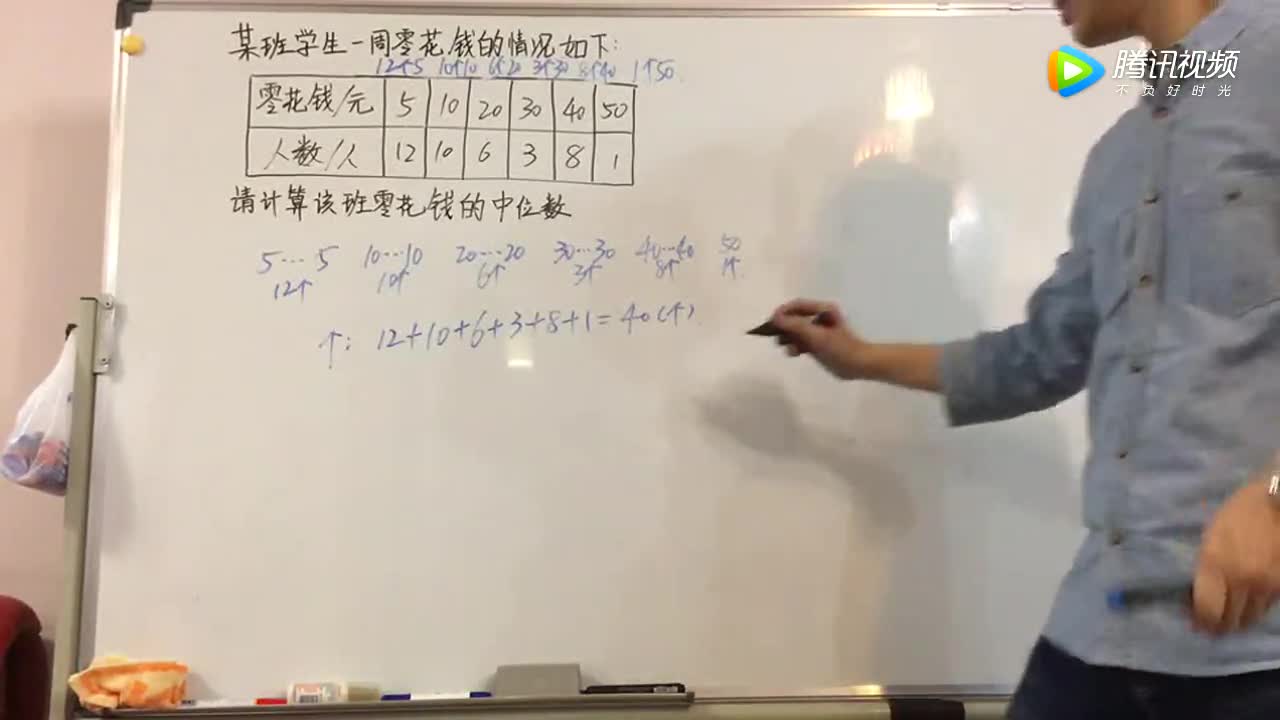 某班学生一周零花钱的情况如下:
12个5 10个10 6个20 3个30 8个40 1个50
零花钱/元 5 10 20 30 40 50
人数/人 12 10 6 3 8 1
请计算该班零花钱的中位数
5…5 10…10 20…20 30…30 40…40 50
12个 10个 6个 3个 8个 1个.
个: 12+10+6+3+8+1=40(个).
腾讯视频
不负好时光